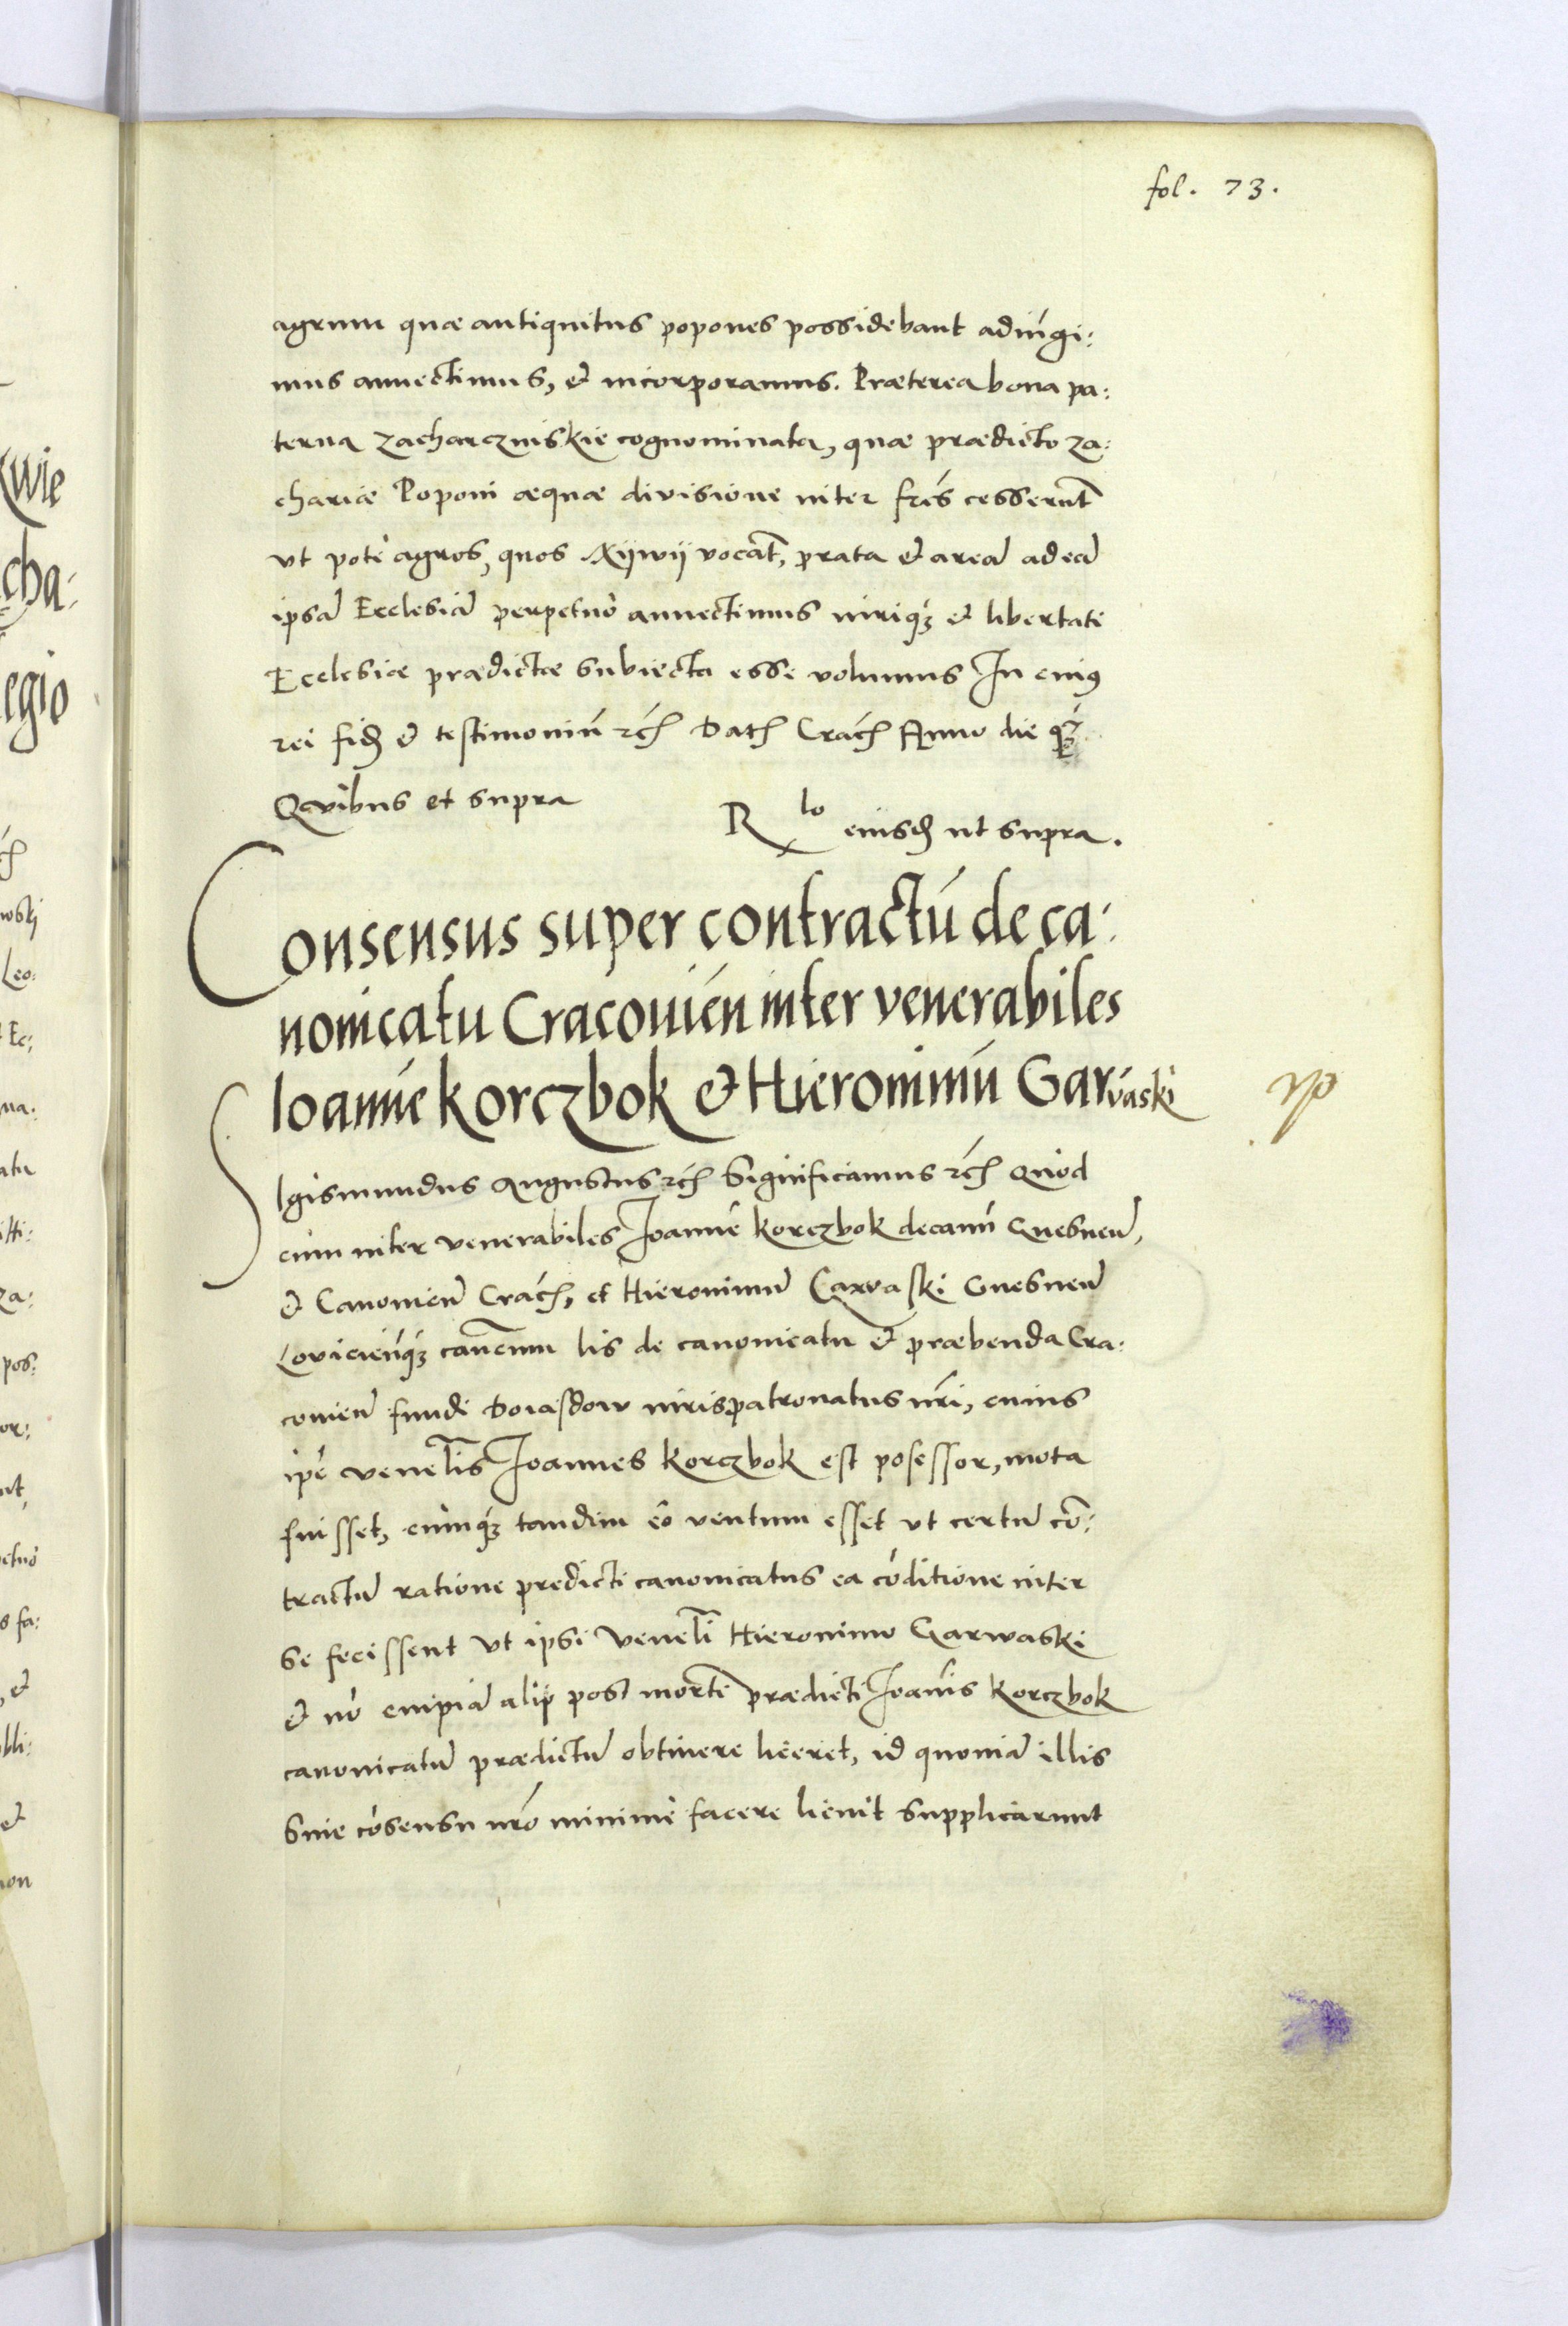 fol. 73.
agrum quæ antiquitus popones possidebant adiúngi:
mus annectimus, et incorporamus. Præterea bona pa:
terna zacharczinskie cognominata, quæ prædicto za:
chariæ Poponi æqua divisione inter frēs cesserūt
vt pote agros, quos Nijwij vocāt, prata et areā ad eā
ipsā Ecclesiā perpetuò annectimus iuriq₃ et libertati
Ecclesiæ prædictæ subiecta esse volumus In cuiꝰ
rei fidē et testimoniū ꝛc̄ Datꝭ Cracꝭ Anno die q₃
Qvibus et supra
Rlo eiusdē ut supra.
Consensus super contractū de ca:
nonicatu Cracouiēn inter venerabiles
Ioannē Korczbok et Hieronimū Garvaski
SIgismundus Augustus ꝛc̄ Significamus ꝛc̄ Quod
cum inter venerabiles Joannē Korczbok decanū Gnesnen̄,
et Canonicū Cracꝭ, et Hieronimū Garvaski Gnesnen̄
Loviciēnq₃ canonicum lis de canonicatu et præbenda Cra:
couien̄ fundi Doiasdow iuris patronatus nr̄i, cuius
ipē venelis Joannes Korczbok est posessor, mota
fuisset, cumq₃ tandem eò ventum esset vt certū cō:
tractū ratione predicti canonicatus ea cōditione inter
se fecissent vt ipsi veneli Hieronimo Garwaski
et nō cuipiā alij post mortē prædicti Joānis Korczbok
canonicatū prædictū obtinere liceret, id quoniā illis
sine cōsensu nr̄o minimè facere licuit supplicarunt